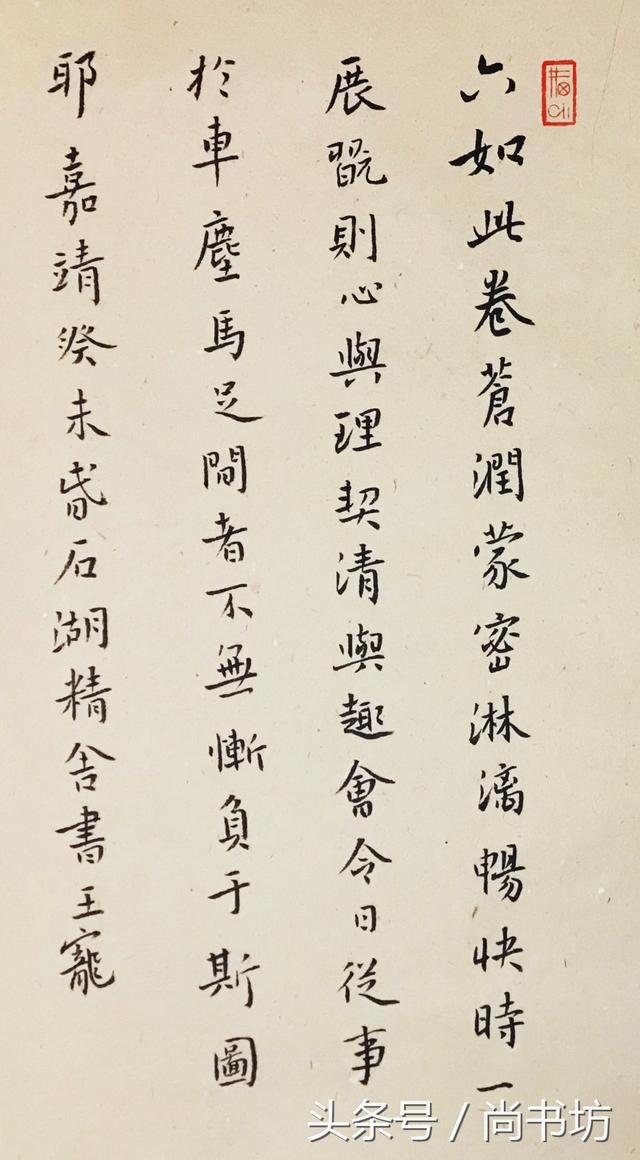 六如此卷蒼潤蒙密淋漓暢快時一
展翫則心與理契清與趣會令日從事
於車塵馬足間者不無慚負于斯圖
耶嘉靖癸未春石湖精舍書王寵
头条号 / 尚书坊